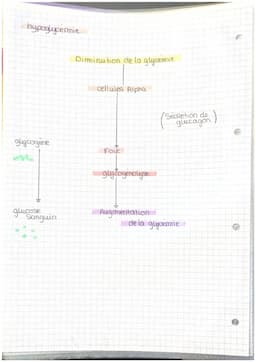 hypoglycémie
Diminution de la glycémie
cellules Alpha
(Sécrétion de
glucagon)
glycogène
Foie
glycogénolyse
glucose
sanguin
Augmentation
de la glycémie